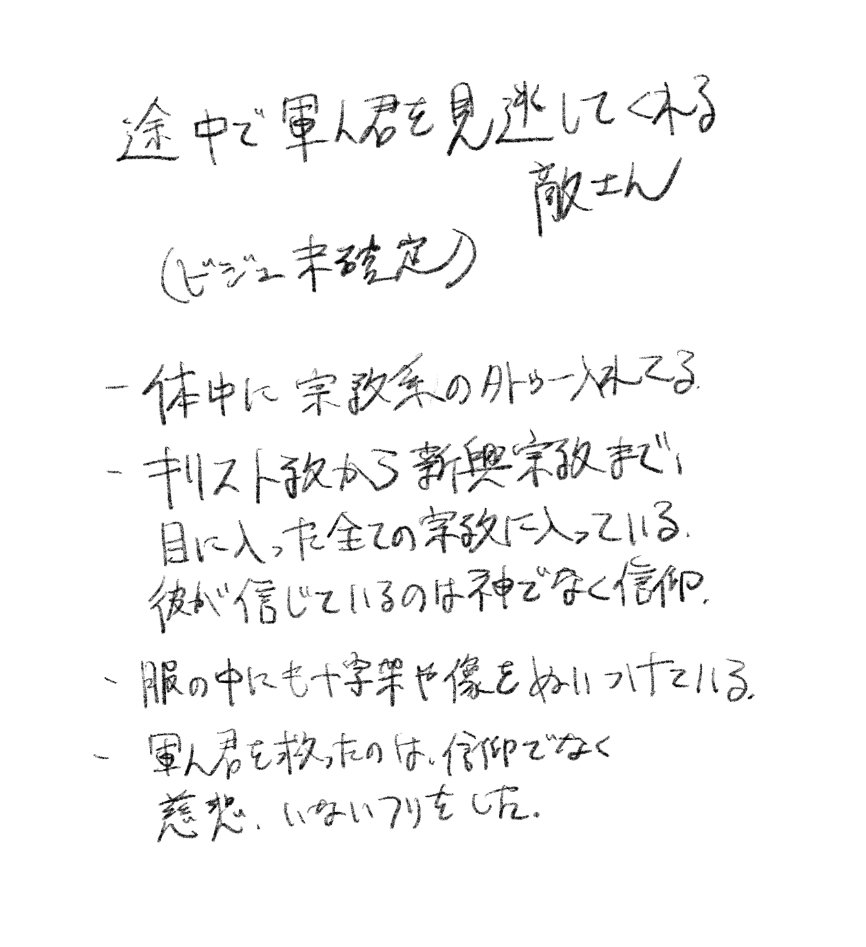 途中で軍人君を見逃してくれる
敵さん
(ビジュ未確定)
- 体中に宗教系のタトゥー入れてる.
- キリスト教から新興宗教まで、
目に入った全ての宗教に入っている.
彼が信じているのは神でなく信仰.
- 服の中にも十字架や像をぬいつけている.
- 軍人君を救ったのは、信仰でなく
慈悲、いないフリをした.